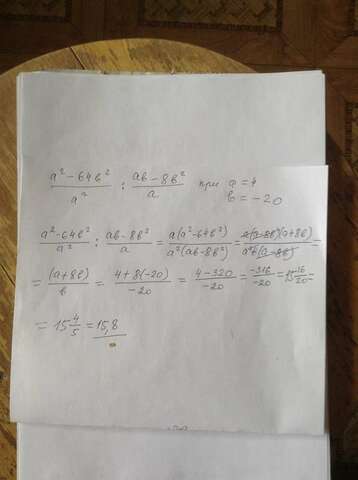 a² - 64b² / a² : ab - 8b² / a при a = 4
b = -20
a² - 64b² / a² : ab - 8b² / a = a(a² - 64b²) / a²(ab - 8b²) = a(a - 8b)(a + 8b) / a²b(a - 8b) =
= (a + 8b) / b = 4 + 8(-20) / -20 = 4 - 320 / -20 = -316 / -20 = 15 16/20 =
= 15 4/5 = 15,8